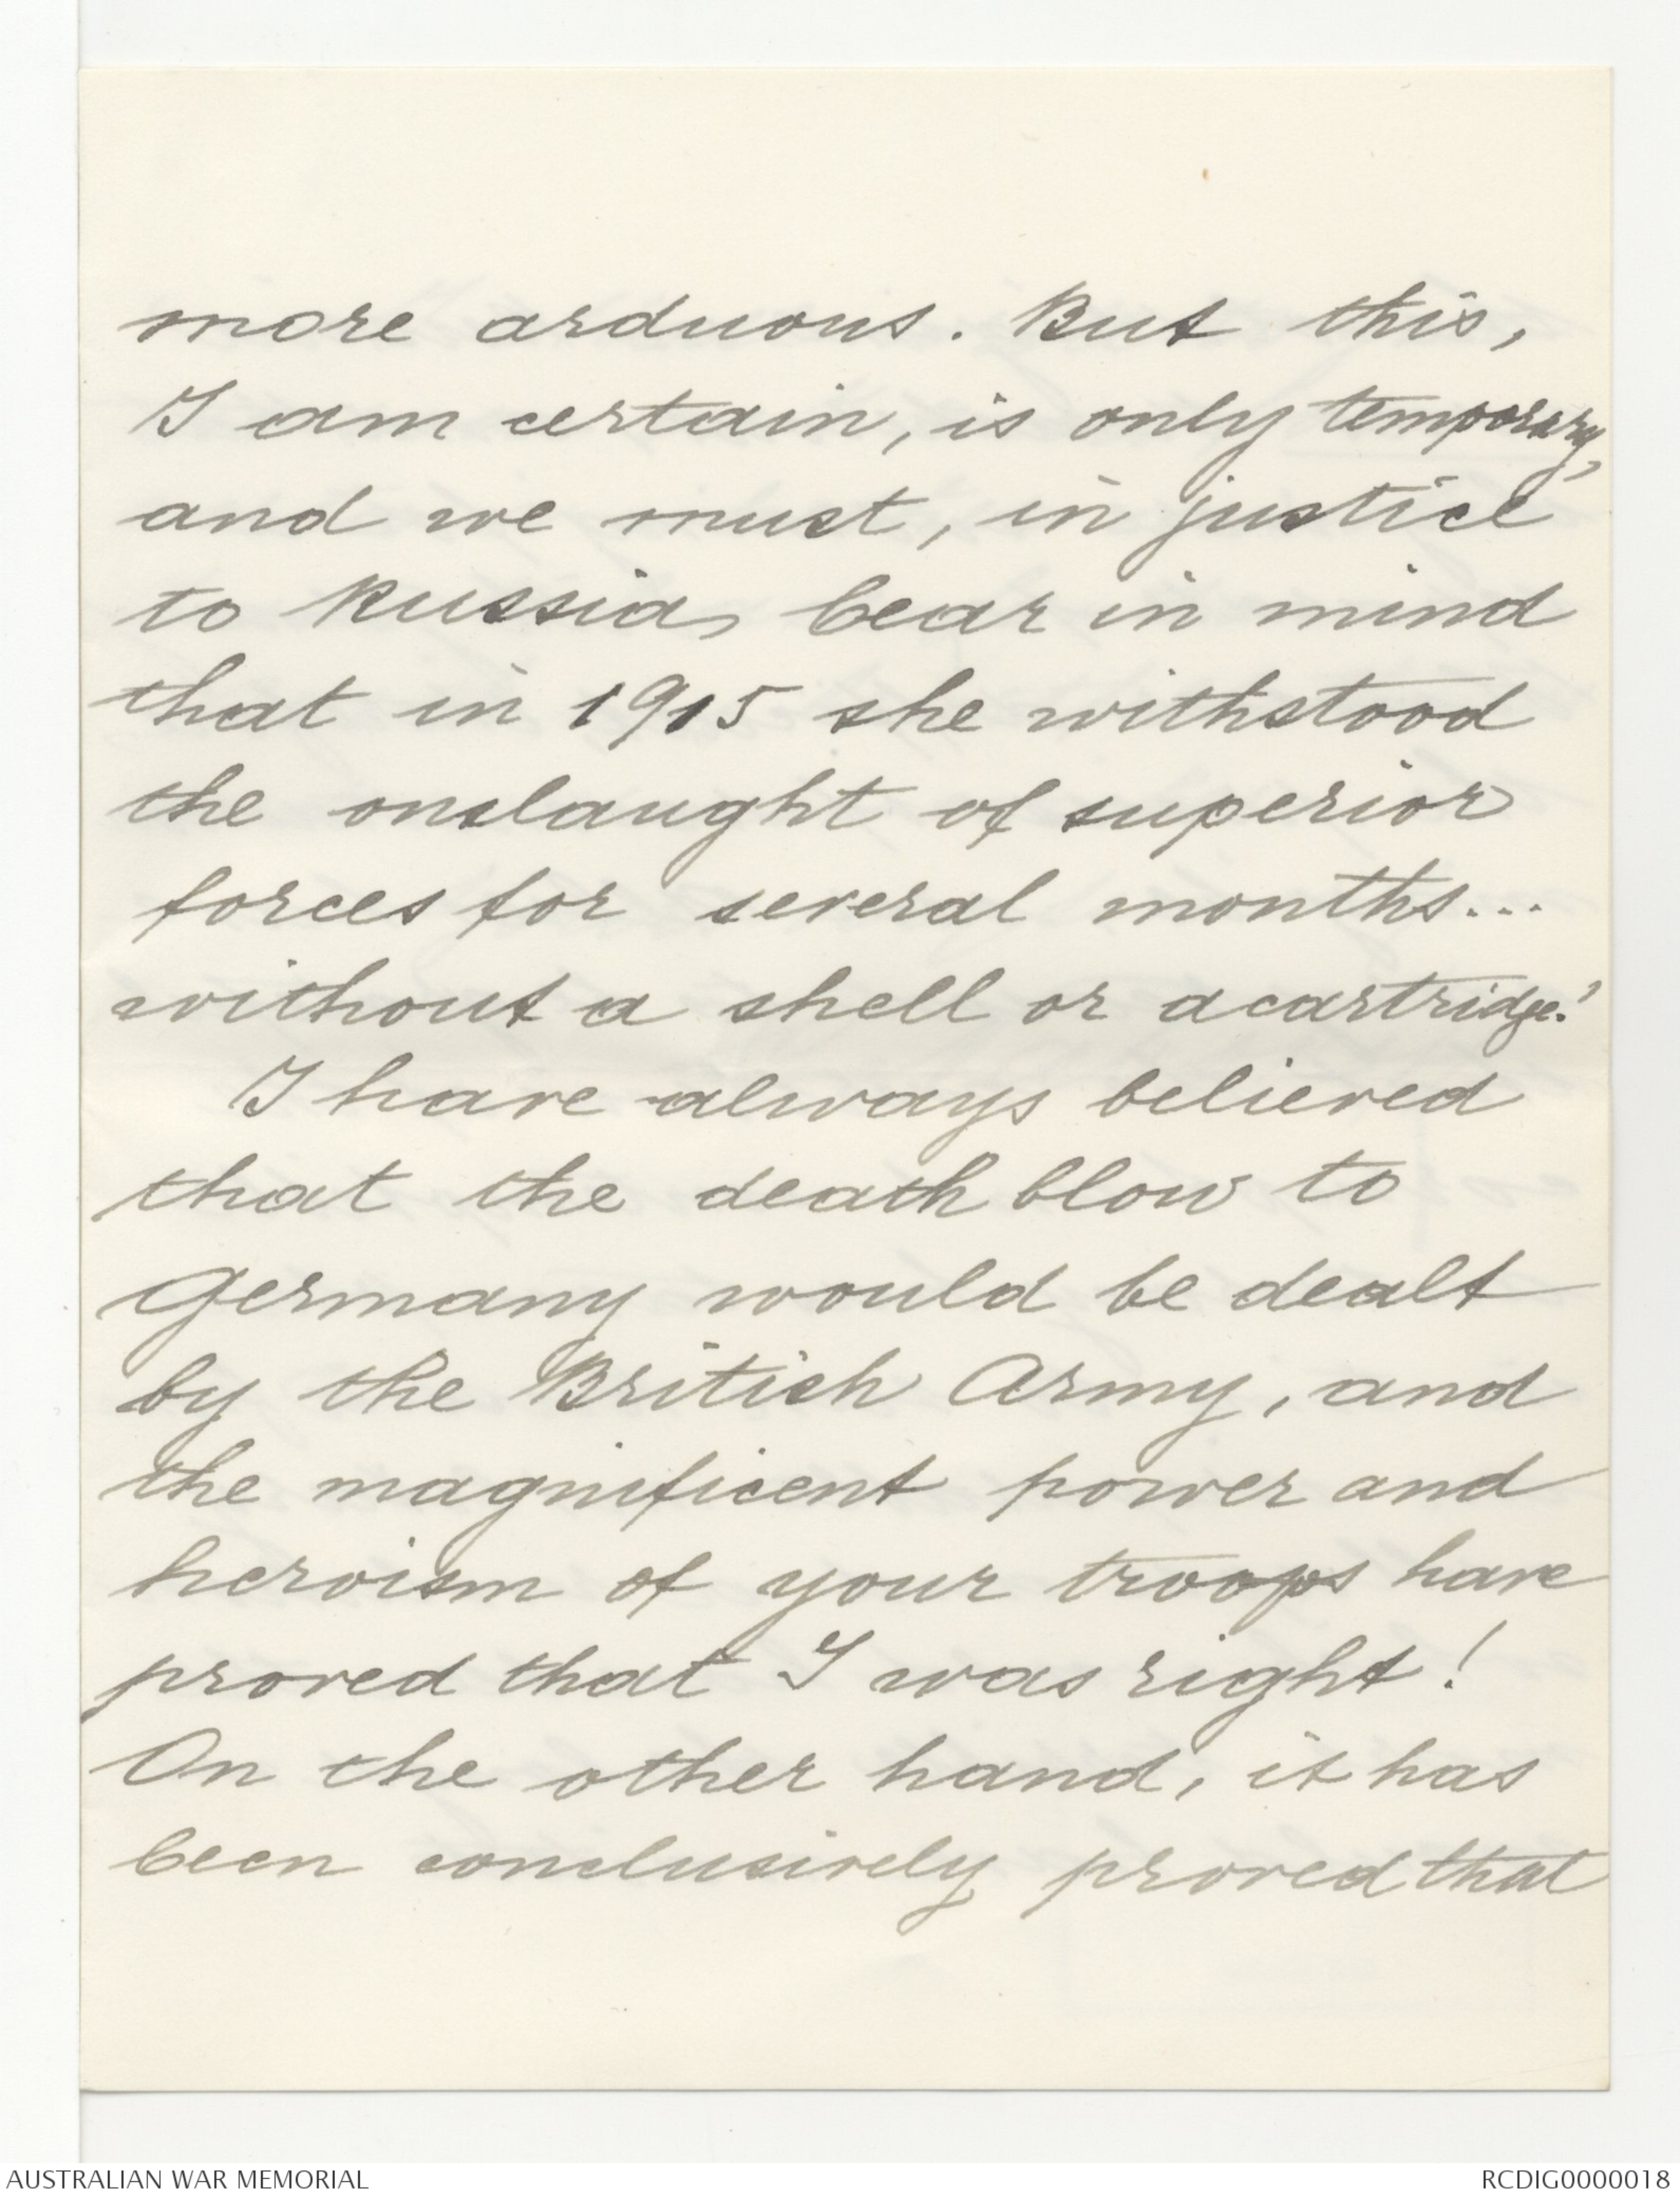 more arduous. But this,
I am certain, is only temporary,
and we must, in justice
to Russia, bear in mind
that in 1915 she withstood
the onslaught of superior
forces for several months...
without a shell or a cartridge!
I have always believed
that the death blow to
Germany would be dealt
by the British Army, and
the magnificent power and
heroism of your troops have
proved that I was right!
On the other hand, it has
been conclusively proved that
AUSTRALIAN WAR MEMORIAL
RCDIG0000018